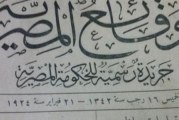 الوقائع المصرية
جريدة رسمية للحكومة المصرية
١٦ رجب سنة ١٣٤٢ — ٢١ فبراير سنة ١٩٢٤